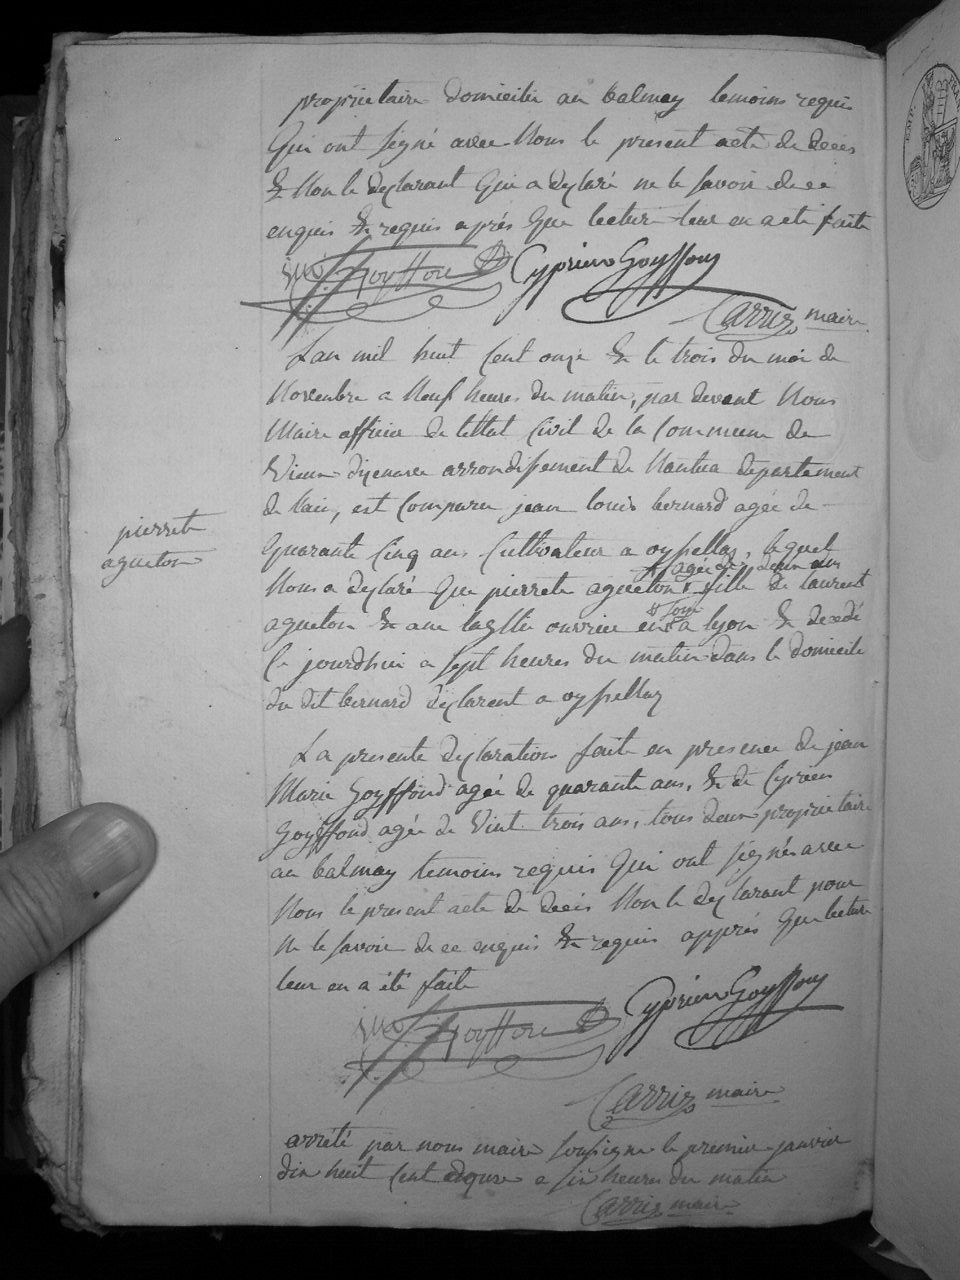 proprietaire domicilié au balmay temoins requis
Qui ont signé avec Nous le present acte de deces
& Non le declarant Qui a declaré ne le savoir de ce
enquis & requis aprés Que lecture leur en a eté faite
goyffon Cyprien Goyffon
Carrier maire
Lan mil huit Cent onze & le trois du moi de
Novembre a Neuf heures du matin, par devant Nous
Maire officier de lettat Civil de la Commune de
Vieu dizenave arrondissement de Nantua departement
de lain, est Comparu jean louis bernard agée de
pierrete
agueton
Quarante Cinq ans Cultivateur a oyssellaz, lequel
agée de deux ans
Nous a declaré Que pierrete agueton fille de laurent
agueton & ouvrier en a lyon & decedé
soye
Ce jourdhui a sept heures du matin dans le domicile
du dit bernard declarent a oyssellaz
La presente declaration faite en presence de jean
Marie Goyffond agée de quarante ans, & de Cyprien
Goyffond agée de vint trois ans, tous deux proprietaire
au balmay temoins requis Qui ont signés avec
Nous le present acte de deces Non le declarant pour
Ne le savoir de ce enquis & requis apprés Que lecture
leur en a été faite
goyffon Cyprien Goyffon
Carrier maire
arrété par nous maire sousigne le premier janvier
dix huit Cent douze a six heures du matin
Carrier maire